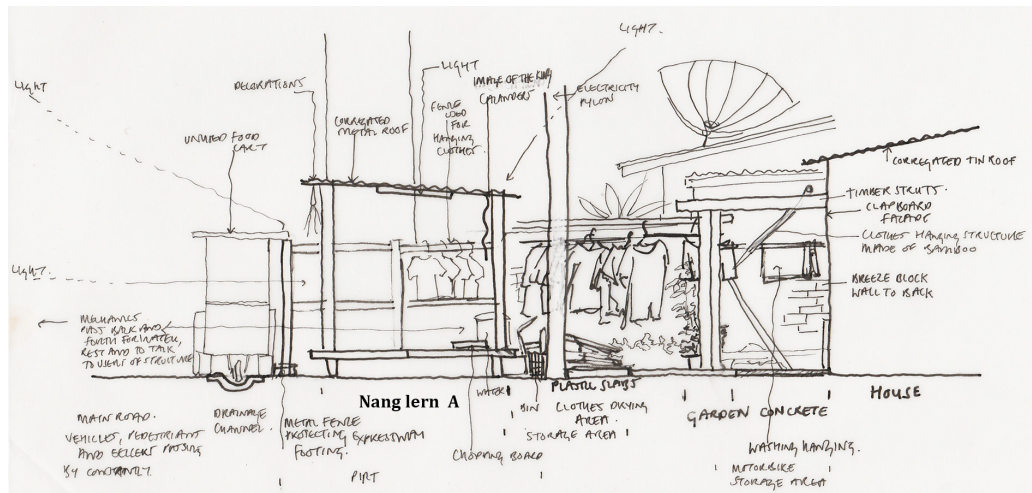 LIGHT.
LIGHT
DECORATIONS
LIGHT
IMAGE OF THE KING
CALANDERS
ELECTRICITY
PYLON
UNUSED FOOD
CART
CORREGATED
METAL ROOF
FENCE
USED
FOR
HANGING
CLOTHES.
CORREGATED TIN ROOF
TIMBER STRUTS.
CLAPBOARD
FACADE
CLOTHES HANGING STRUCTURE
MADE OF BAMBOO
BREEZE BLOCK
WALL TO BACK
LIGHT.
MECHANICS
PASS BACK AND
FORTH FOR WATER,
REST AND TO TALK
TO USERS OF STRUCTURE
Nang lern A
WATER
PLASTIC SLABS
HOUSE
MAIN ROAD.
VEHICLES, PEDESTRIANT
AND SELLERS PASSING
BY CONSTANTLY.
DRAINAGE
CHANNEL.
METAL FENCE
PROTECTING EXPRESSWAY
FOOTING.
BIN
CLOTHES DRYING
AREA.
STORAGE AREA
GARDEN CONCRETE
CHOPPING BOARD
WASHING HANGING.
MOTORBIKE
STORAGE AREA